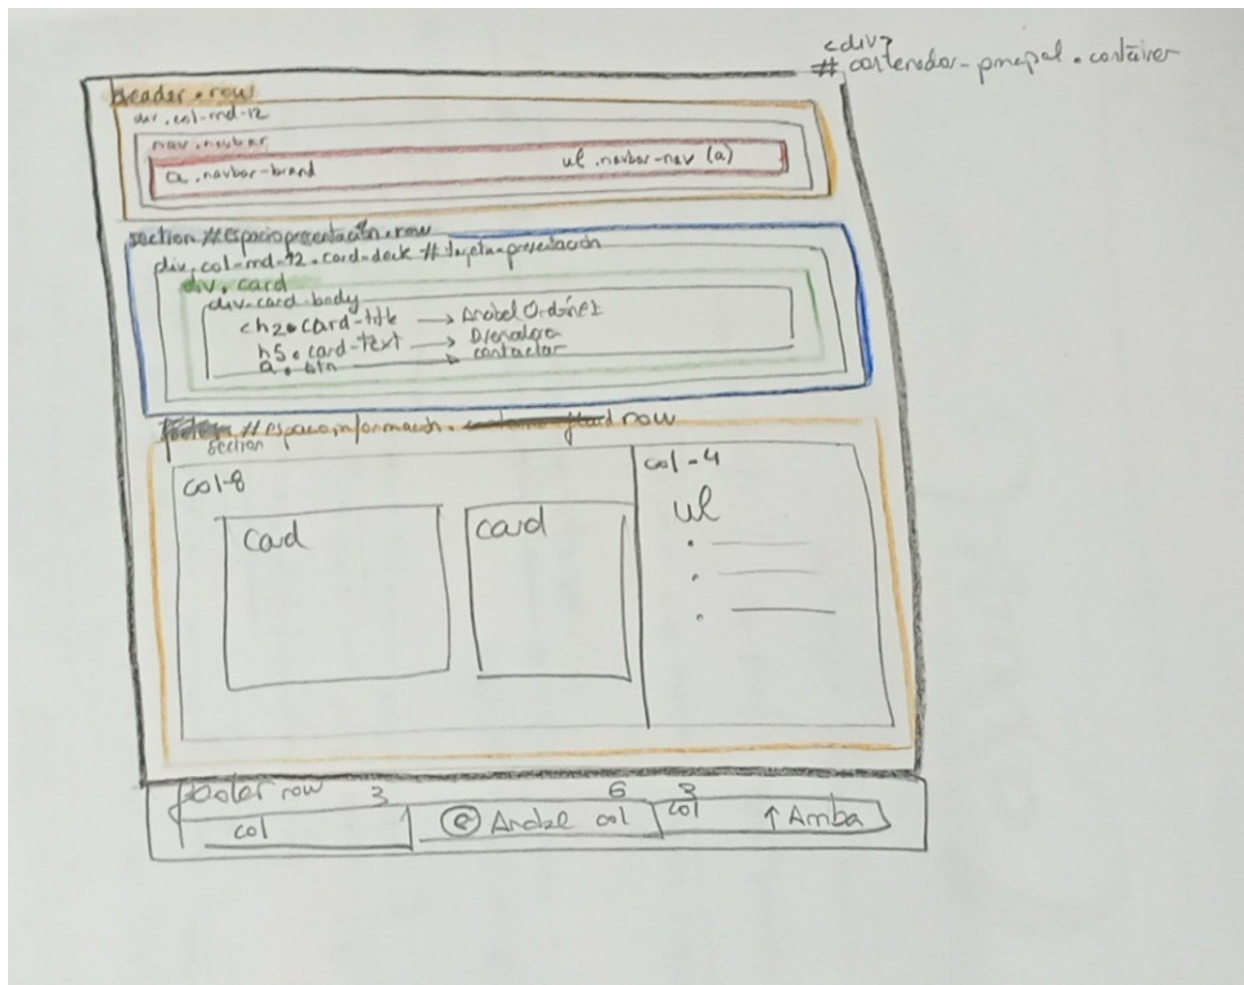 <div>
# contenedor-principal.container
header.row
div.col-md-12
nav.navbar
a.navbar-brand ul.navbar-nav (a)
section #espaciopresentación.row
div.col-md-12.card-deck #tarjeta-presentación
div.card
div.card.body
h2.card-title → Anabel Ordóñez
h5.card-text → Diseñadora
a.btn → contactar
#espacioinformación. row
section
col-8
col-4
card
card
ul
footer row 3 6 3
col
© Anabel col
col
↑ Arriba